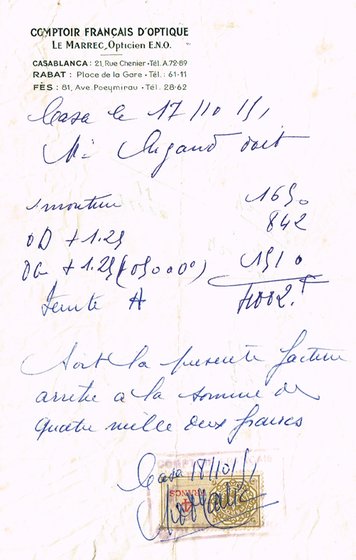 COMPTOIR FRANÇAIS D'OPTIQUE
LE MARREC, Opticien E.N.O.
CASABLANCA: 21, Rue Chenier - Tél. A.72-89
RABAT : Place de la Gare - Tél. : 61-11
FÈS : 81, Ave. Poeymirau - Tél. 28-62
Casa le 17/10/51
Mr doit
1 monture 1650
OD + 1.25 842
OG + 1.25 (05 0 00°) 1510
Teinte A 4002.
Soit la présente facture
arrêtée à la somme de
quatre mille deux francs
Casa 18/10/51